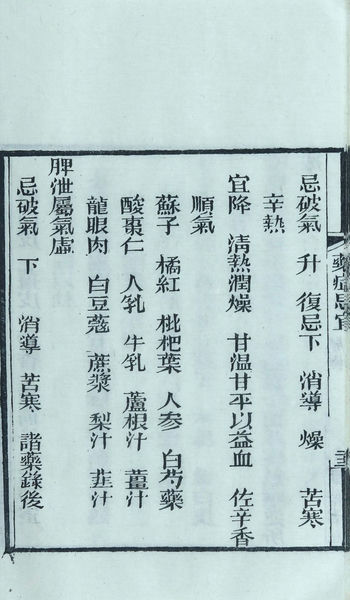 藥症忌宜
忌破氣　升　復忌下　消導　燥　苦寒
辛熱
宜降　清熱潤燥　甘温甘平以益血　佐辛香
順氣
蘇子　橘紅　枇杷葉　人参　白芍藥
酸棗仁　人乳　牛乳　蘆根汁　薑汁
龍眼肉　白豆蔻　蔗漿　梨汁　韭汁
脾泄屬氣虛
忌破氣　下　消導　苦寒　諸藥錄後